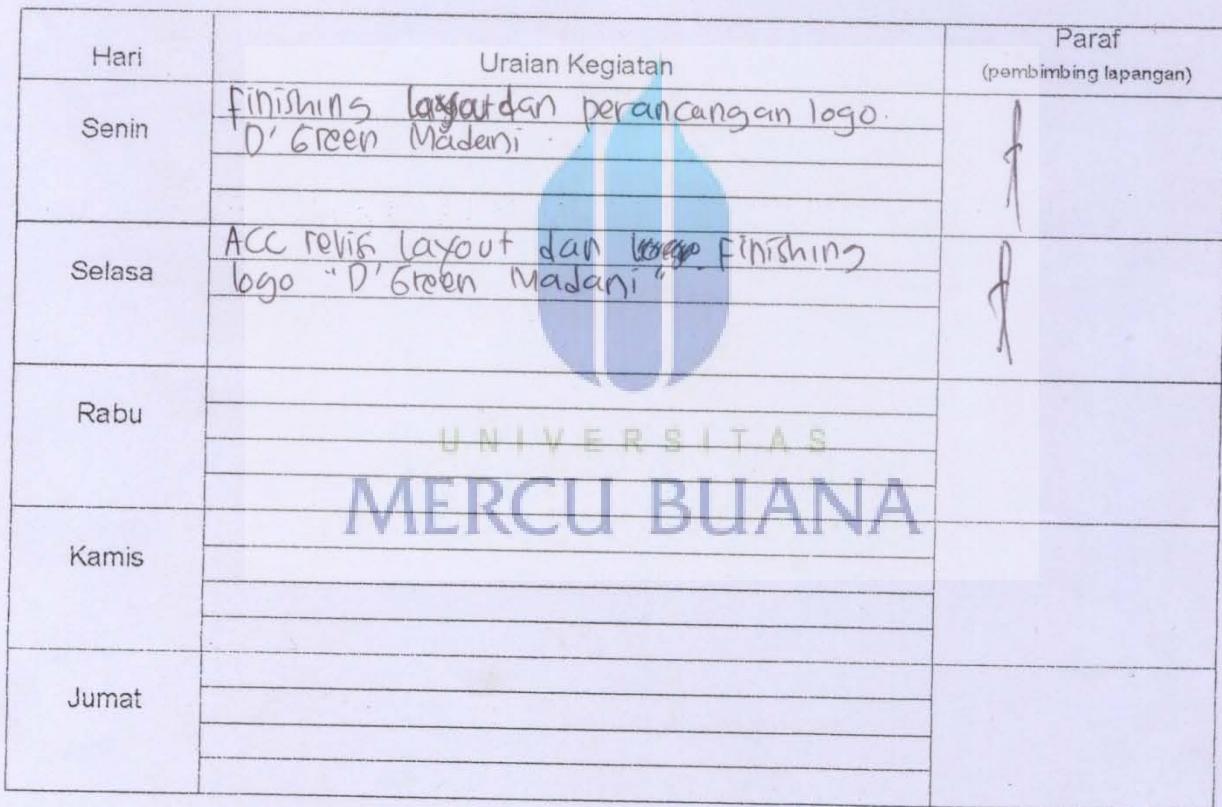 Hari
Uraian Kegiatan
Paraf
(pembimbing lapangan)
Senin
Finishing layout dan perancangan logo.
D' Green Madani.
Selasa
ACC revisi layout dan finishing
logo "D' Green Madani"
Rabu
UNIVERSITAS
MERCU BUANA
Kamis
Jumat